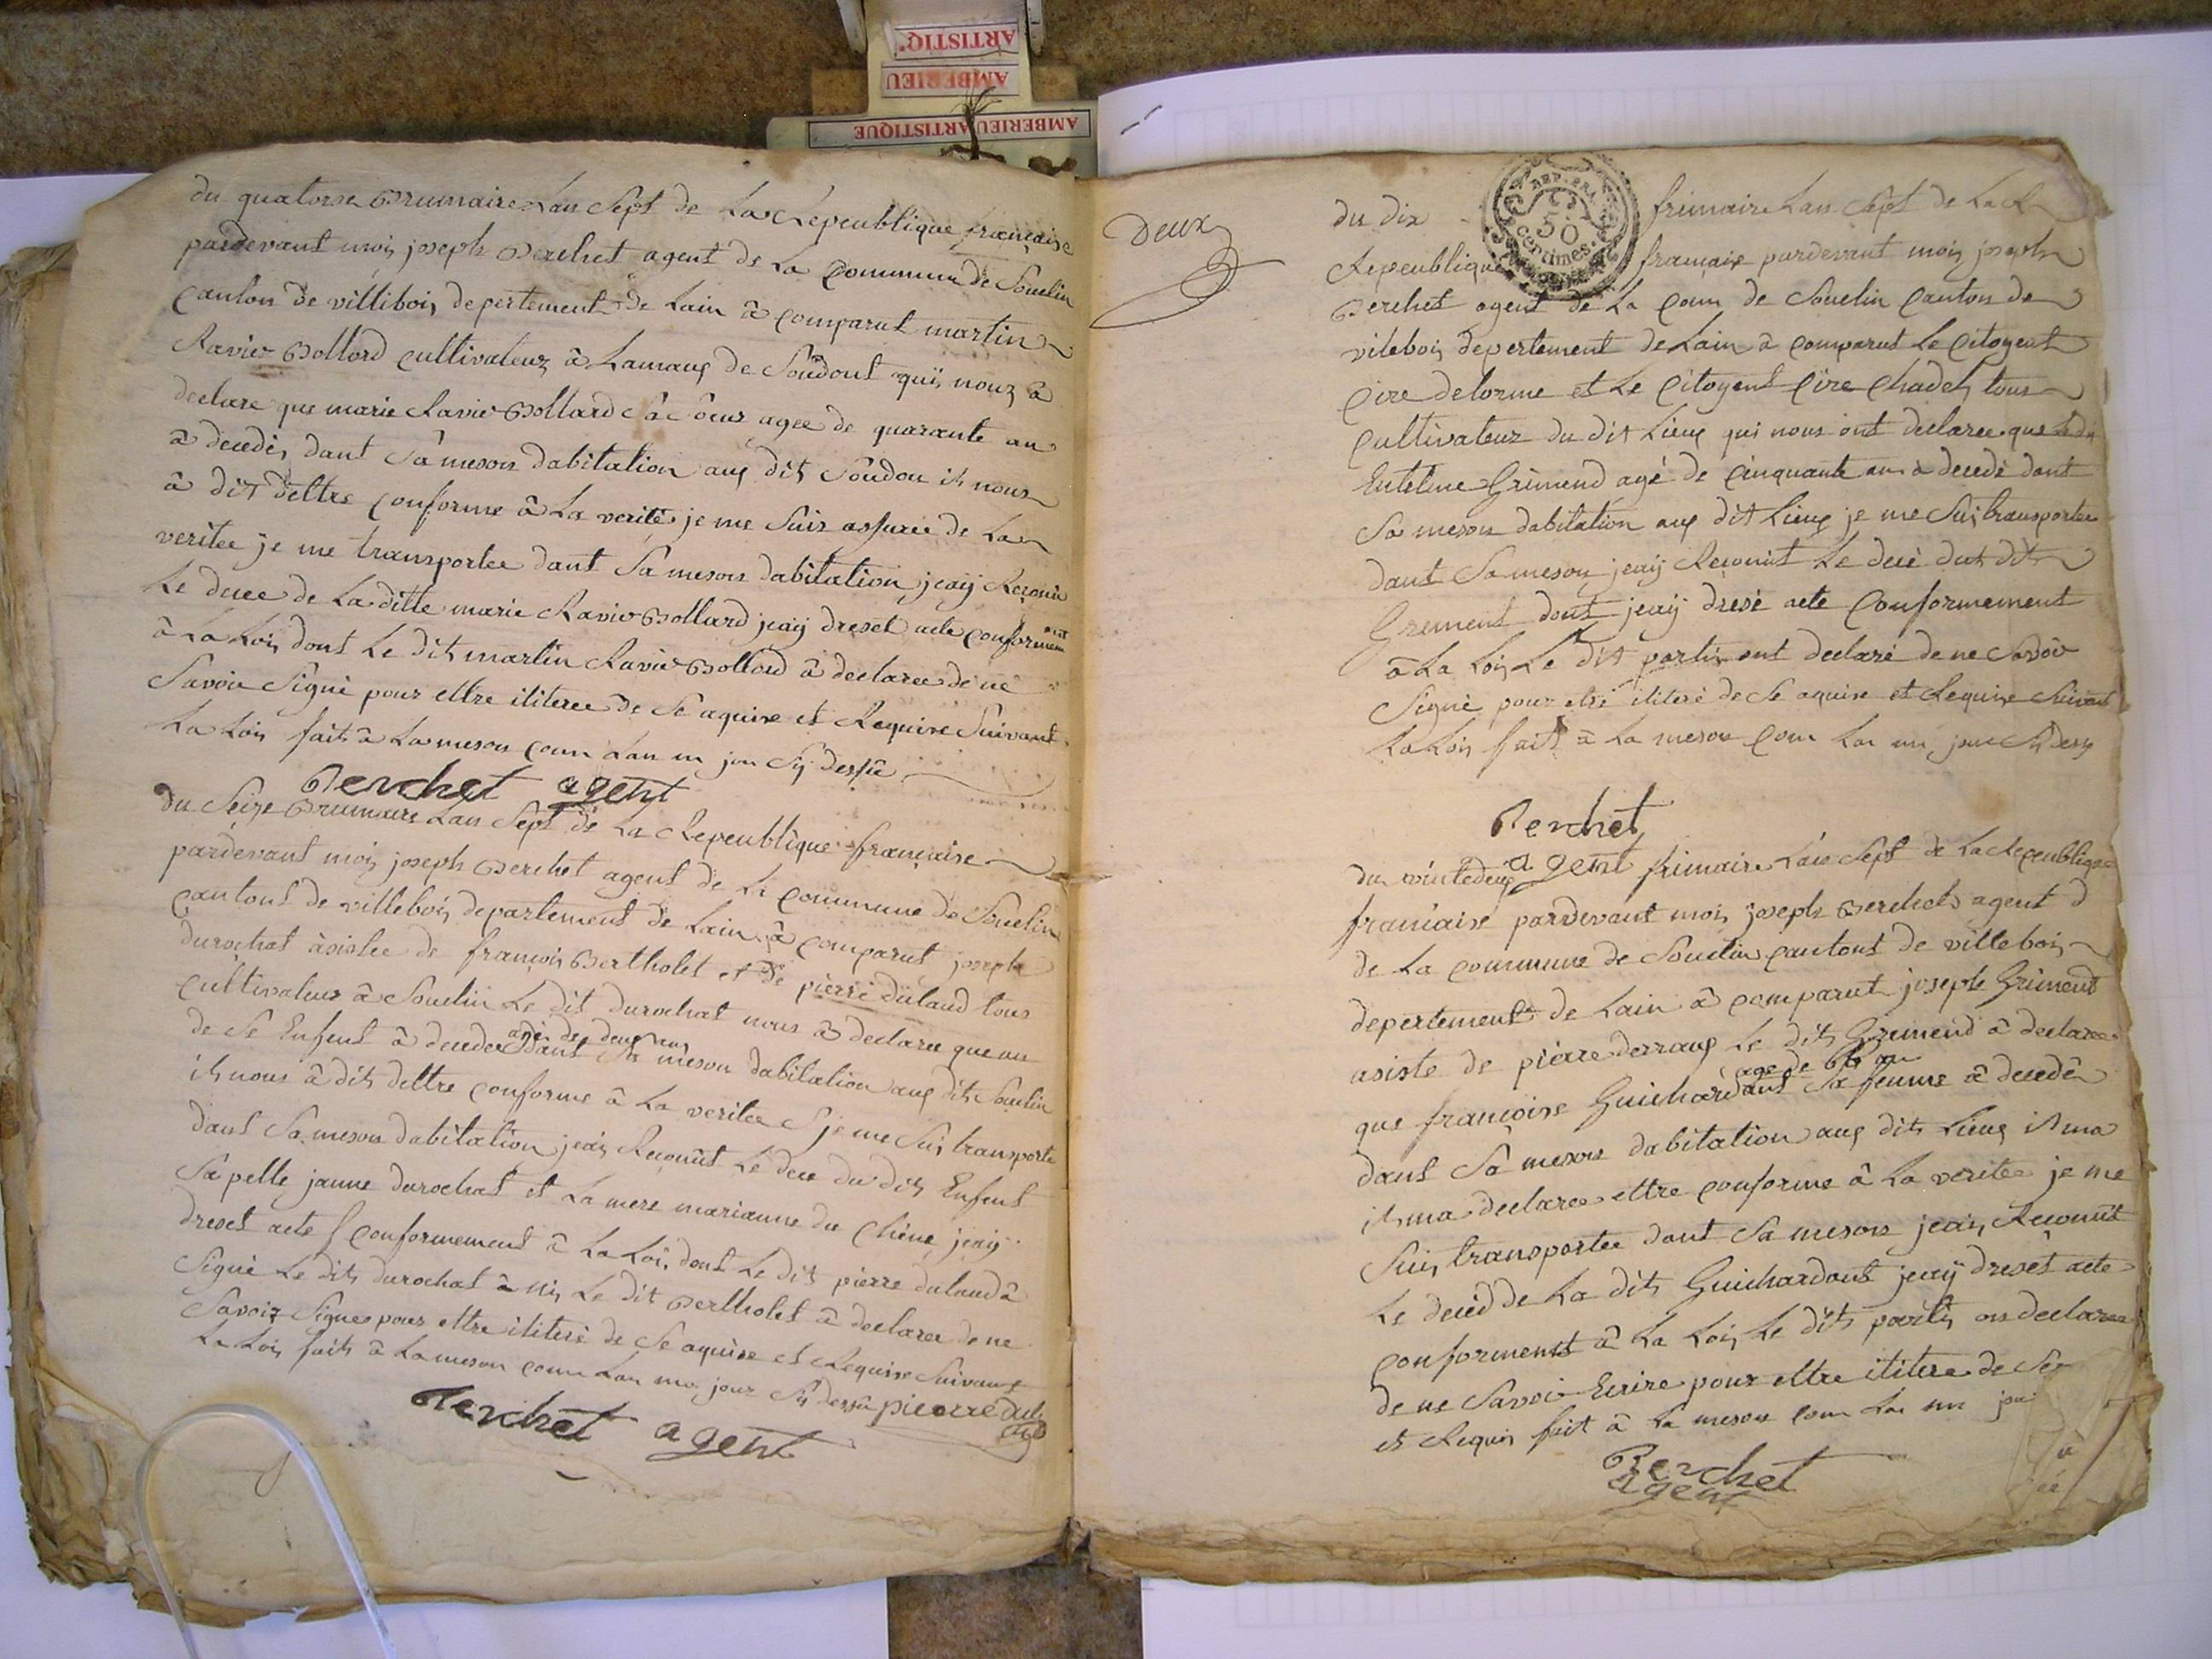 ARTISTIQ'
AMBERIEU
AMBERIEU ARTISTIQUE
du quatorse Brumaire Lan Sept de La Repeublique françaisse
pardevant mois joseph Berchet agent de La Commune de Souclin
Canton de villibois depertement de Lain â Comparut martin
Ravier Bollard Cultivateur â Lamaux de Soudont quÿ nous â
declare que marie Ravier Bollard Sâ Sœur agee de quarante an
â decedés dant Sâ meson dabitation aux dit Soudon ils nous
â dit dettre Conforme â La verité je me Suis assuree de La
veritee je me transportee dant Sa meson dabitation jeaÿ Reconu
Le decee de La ditte marie Ravier Bollard jeaÿ dreset acte Conformem ant
â La Lois dont Le dit martin Ravier Bollard â declaree de ne
Savoir Signé pour ettre ilitere de Se aquire et Require Suivant
La Lois fait â La meson Com Lan m jou Sÿ dessû
Perchet agent
du Seize Brumaire Lan Sept de La Repeublique française
pardevant mois joseph Berchet agent de La Commune de Souclin
Cantont de villebois departement de Lain â Comparut joseph
durochat àsistee de françois Bertholet et de pierre dulaud tous
Cultivateur â Souclin Le dit durochat nous â declaree que un
agé de deux an
de Se Enfent â decedee dans Sa meson dabitation aux dits Souclin
ils nous â dits dettre Conforme â La veritee je me Suis transporte
dans Sa meson dabitation jeais Reconût Le decee du dits Enfent
Sapelle janne durochat et La mere marianne du Chêne jeaÿ
dreset acte Conformement â La Lois dont Le dit pierre dulaud â
Signé Le dits durochat â Le dit Bertholet â declaree de ne
Savoir Signe pour ettre iliteré de Se aquise et Requise Suivant
La Lois faits â La meson Com Lan jour Sÿ dessû pierre
Perchet agent
Deux
REP. FRA
50
centimes
du dix frimaire Lan Sept de La
Repeublique française pardevant mois joseph
Berchet agent de La Com de Souclin Canton de
vilebois depertement de Lain â Comparut Le Citoyent
Cire delorme et Le Citoyent Cire Chadel tous
Cultivateur du dit Lieux qui nous ont declaree que
Grimend agé de Cinquante an â decedé dant
Sa meson dabitation aux dit Lieux je me Suis transportee
dant Sa meson jeaÿ Reconût Le decé dut dits
Grement dont jeaÿ dresé acte Conformement
â La Lois Le dit partis ont declaré de ne Savoir
Signé pour etre ilitere de Se aquire et Require Suivant
La Lois fait â La meson Com Lan jour Sÿ
Perchet
agent
du vintedeux frimaire Lan Sept de La Repeublique
française pardevant mois joseph Berchet agent d
de La Commune de Souclin Cantont de villebois
depertement de Lain â Comparut joseph Griment
asiste de pierre derraux Le dits Gremend â declaree
age de an
que françoise Guichardant Sa femme â decedé
dant Sâ meson dabitation aux dits Lieux ilsma
ilsma declaree ettre Conforme â La veritee je me
Suis transportee dant Sa meson jeais Reconût
Le decéd de La dits Guichardant jeaÿ dreset acte
Conforment â La Lois Le dits partis ons declaree
de ne Savoir Ecrire pour ettre ilitere de Se
et Requis fait â La meson Com Lan
Perchet
agent